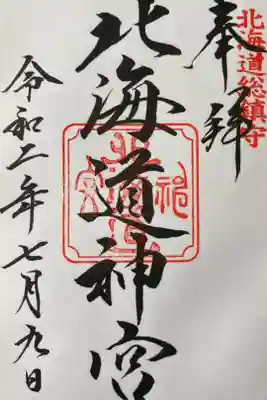 北海道総鎮守
奉拝
北海道神宮
令和二年七月九日